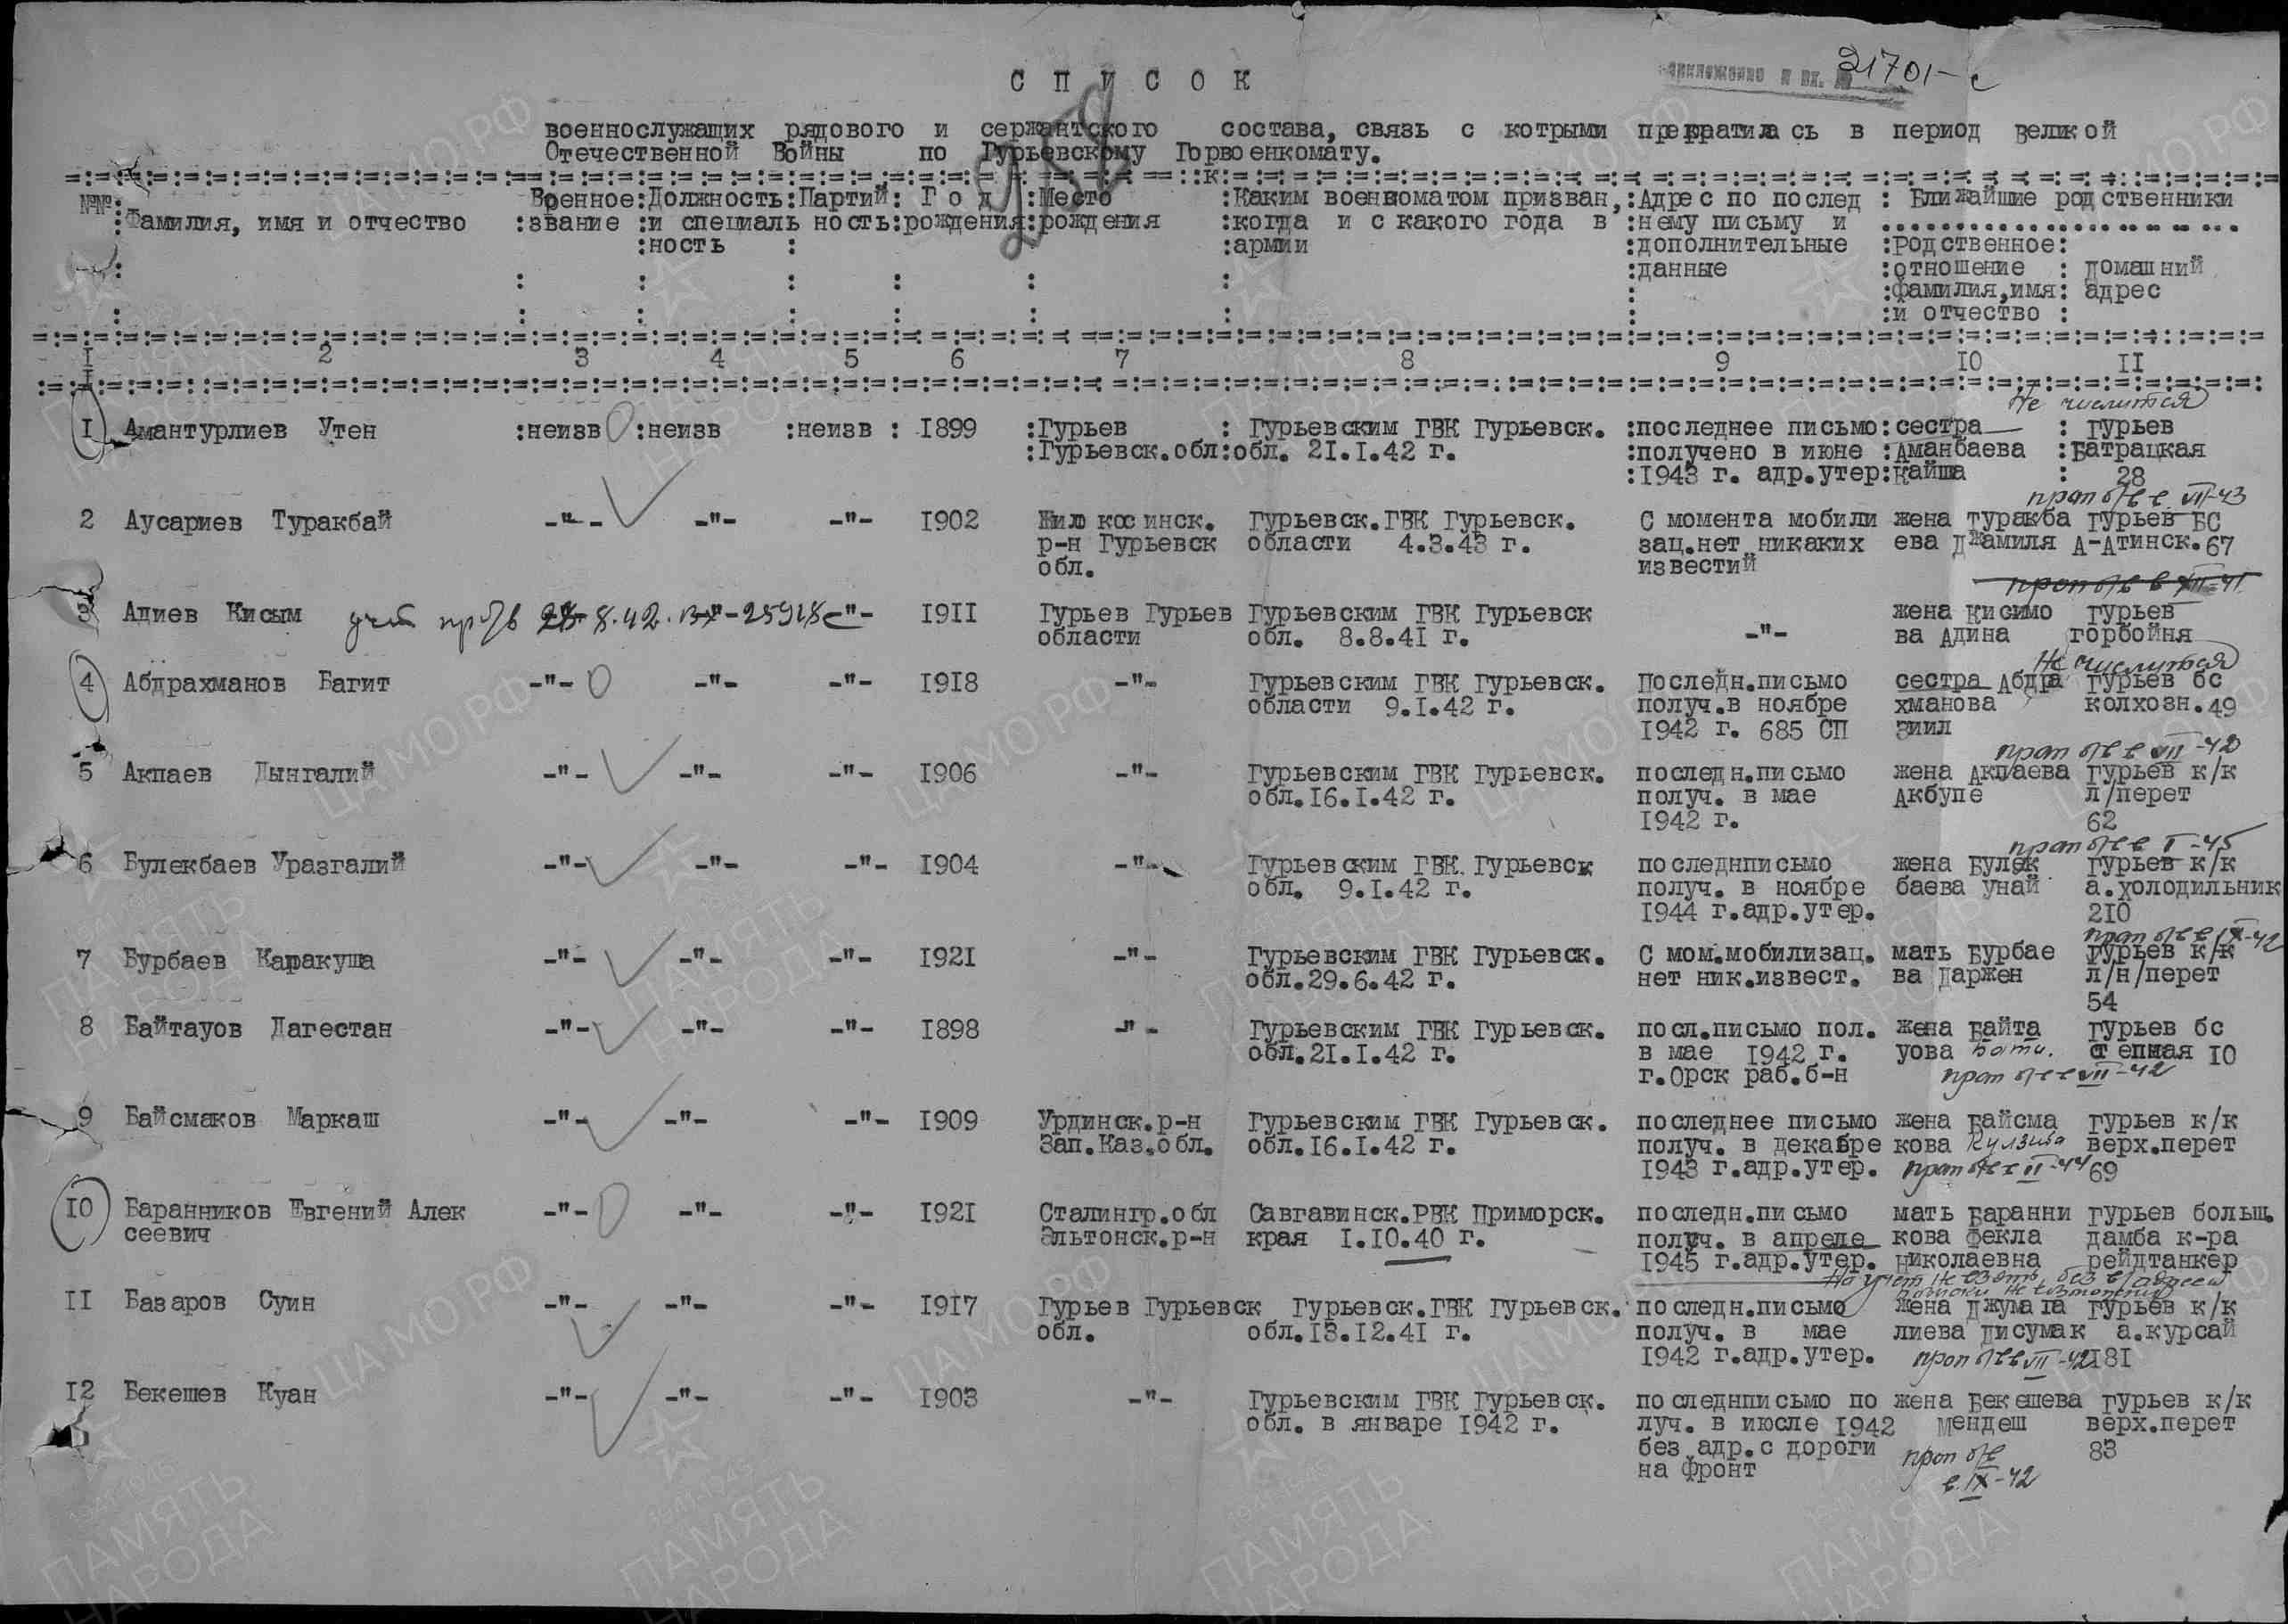 СПИСОК
31701-с
военнослужащих рядового и сержантского состава, связь с котрыми прекратилась в период великой
Отечественной Войны по Гурьевскому Горвоенкомату.
№№ Фамилия, имя и отчество :Военное звание :Должность и специаль ность :Партий ность: Год рождения :Место рождения :Каким военкоматом призван, когда и с какого года в армии :Адрес по послед нему письму и дополнительные данные : Ближайшие родственники :родственное отношение фамилия,имя и отчество : домашний адрес
I 2 3 4 5 6 7 8 9 10 II
Не числится
I Амантурлиев Утен :неизв :неизв :неизв : 1899 :Гурьев : Гурьевским ГВК Гурьевск. :последнее письмо:сестра : гурьев
:Гурьевск.обл:обл. 21.I.42 г. :получено в июне :Аманбаева :Батрацкая
:1943 г. адр.утер:Кайша : 28
проп б/в в VII-43
2 Аусариев Туракбай -"- -"- -"- 1902 Жилокосинск. Гурьевск.ГВК Гурьевск. С момента мобили жена туракба гурьев БС
р-н Гурьевск области 4.3.43 г. зац.нет никаких ева Джамиля А-Атинск.67
обл. известий
проп б/в в XII-41
3 Адиев Кисым 8.42. -25918с -"- 1911 Гурьев Гурьев Гурьевским ГВК Гурьевск жена кисимо гурьев
области обл. 8.8.41 г. -"- ва Адина горбойня
Не числится
4 Абдрахманов Багит -"- -"- -"- 1918 -"- Гурьевским ГВК Гурьевск. Последн.письмо сестра Абдра гурьев бс
области 9.I.42 г. получ.в ноябре хманова колхозн.49
1942 г. 685 СП Зиил
проп б/в в VII-42
5 Акпаев Дынгалий -"- -"- -"- 1906 -"- Гурьевским ГВК Гурьевск. последн.письмо жена Акпаева гурьев к/к
обл.16.I.42 г. получ. в мае Акбупе л/перет
1942 г. 62
проп б/в в I-45
6 Булекбаев Уразгалий -"- -"- -"- 1904 -"- Гурьевским ГВК Гурьевск последнписьмо жена Булек гурьев к/к
обл. 9.I.42 г. получ. в ноябре баева унай а.холодильник
1944 г.адр.утер. 210
проп б/в в IX-42
7 Бурбаев Каракуша -"- -"- -"- 1921 -"- Гурьевским ГВК Гурьевск. С мом.мобилизац. мать Бурбае гурьев к/к
обл.29.6.42 г. нет ник.извест. ва Даржен л/н/перет
54
8 Байтауов Дагестан -"- -"- -"- 1898 -"- Гурьевским ГВК Гурьевск. посл.письмо пол. жена Байта гурьев бс
обл.21.I.42 г. в мае 1942 г. уова Бати. степная 10
г.Орск раб.б-н проп б/в в VII-42
9 Байсмаков Маркаш -"- -"- -"- 1909 Урдинск.р-н Гурьевским ГВК Гурьевск. последнее письмо жена Байсма гурьев к/к
Зап.Каз.обл. обл.16.I.42 г. получ. в декабре кова Кулзиба верх.перет
1943 г.адр.утер. проп б/в в II-44 69
10 Баранников Евгений Алек -"- -"- -"- 1921 Сталингр.обл Савгавинск.РВК Приморск. последн.письмо мать Баранни гурьев больш.
сеевич Эльтонск.р-н края I.10.40 г. получ. в апреле кова Фекла дамба к-ра
1945 г.адр.утер. Николаевна рейдтанкер
На учет не взять, без в/адреса
II Базаров Суин -"- -"- -"- 1917 Гурьев Гурьевск Гурьевск.ГВК Гурьевск. последн.письмо жена Джумага гурьев к/к
обл. обл.13.12.41 г. получ. в мае лиева Дисумак а.курсай
1942 г.адр.утер. проп б/в в VII-42 181
12 Бекешев Куан -"- -"- -"- 1903 -"- Гурьевским ГВК Гурьевск. последнписьмо по жена Бекешева гурьев к/к
обл. в январе 1942 г. луч. в июсле 1942 мендеш верх.перет
без адр.с дороги проп б/в 83
на фронт в IX-42